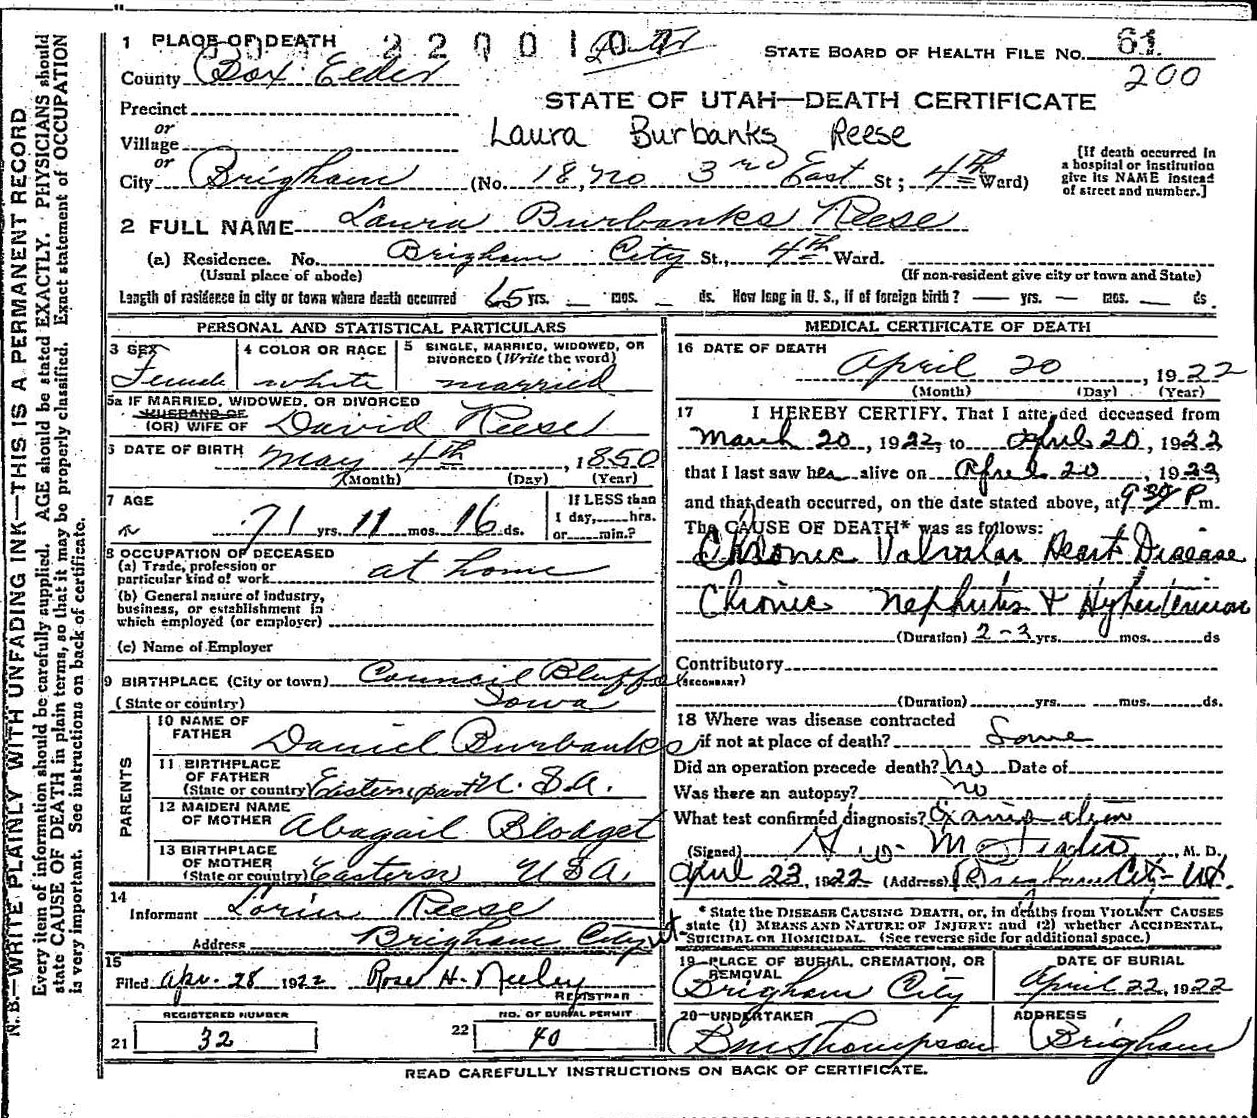 1 PLACE OF DEATH 2200107
STATE BOARD OF HEALTH FILE NO. 61
200
County Box Elder
STATE OF UTAH—DEATH CERTIFICATE
Precinct
or
Village
Laura Burbanks Reese
or
City Brigham (No. 18, no 3rd East St; 4th Ward)
[If death occurred in
a hospital or institution
give its NAME instead
of street and number.]
2 FULL NAME Laura Burbanks Reese
(a) Residence. No. Brigham City St., 4th Ward.
(Usual place of abode) (If non-resident give city or town and State)
Length of residence in city or town where death occurred 65 yrs. — mos. — ds. How long in U. S., if of foreign birth? — yrs. — mos. — ds.
PERSONAL AND STATISTICAL PARTICULARS
3 SEX
Female
4 COLOR OR RACE
white
5 SINGLE, MARRIED, WIDOWED, OR
DIVORCED (Write the word)
married
5a IF MARRIED, WIDOWED, OR DIVORCED
HUSBAND OF
(OR) WIFE OF David Reese
6 DATE OF BIRTH May 4th, 1850
(Month) (Day) (Year)
7 AGE
71 yrs. 11 mos. 16 ds.
If LESS than
1 day, hrs.
or min.?
8 OCCUPATION OF DECEASED
(a) Trade, profession or
particular kind of work at home
(b) General nature of industry,
business, or establishment in
which employed (or employer)
(c) Name of Employer
9 BIRTHPLACE (City or town) Council Bluffs
(State or country) Iowa
PARENTS
10 NAME OF
FATHER Daniel Burbanks
11 BIRTHPLACE
OF FATHER
(State or country) Eastern part U. S. A.
12 MAIDEN NAME
OF MOTHER Abagail Blodget
13 BIRTHPLACE
OF MOTHER
(State or country) Eastern U S A.
14
Informant Lorin Reese
Address Brigham City Ut.
15
Filed Apr. 28 1922 Rose H. Neeley
REGISTRAR
REGISTERED NUMBER
21 32
NO. OF BURIAL PERMIT
22 40
MEDICAL CERTIFICATE OF DEATH
16 DATE OF DEATH
April 20, 1922
(Month) (Day) (Year)
17 I HEREBY CERTIFY, That I attended deceased from
March 20, 1922, to April 20, 1922
that I last saw her alive on April 20, 1922,
and that death occurred, on the date stated above, at 9 30 P m.
The CAUSE OF DEATH* was as follows:
Chronic Valvular Heart Disease
Chronic Nephritis & Hypertension
(Duration) 2-3 yrs. mos. ds
Contributory
(SECONDARY)
(Duration) yrs. mos. ds.
18 Where was disease contracted
if not at place of death?
Did an operation precede death? No Date of
Was there an autopsy? No
What test confirmed diagnosis? Examination
(Signed) , M. D.
April 23, 1922 (Address) Brigham City - Ut.
* State the DISEASE CAUSING DEATH, or, in deaths from VIOLENT CAUSES
state (1) MEANS AND NATURE OF INJURY: and (2) whether ACCIDENTAL,
SUICIDAL OR HOMICIDAL. (See reverse side for additional space.)
19 PLACE OF BURIAL, CREMATION, OR
REMOVAL
Brigham City
DATE OF BURIAL
April 22, 1922
20 UNDERTAKER
B M Thompson
ADDRESS
Brigham
READ CAREFULLY INSTRUCTIONS ON BACK OF CERTIFICATE.
N. B.—WRITE PLAINLY WITH UNFADING INK—THIS IS A PERMANENT RECORD
Every item of information should be carefully supplied. AGE should be stated EXACTLY. PHYSICIANS should
state CAUSE OF DEATH in plain terms, so that it may be properly classified. Exact statement of OCCUPATION
is very important. See instructions on back of certificate.